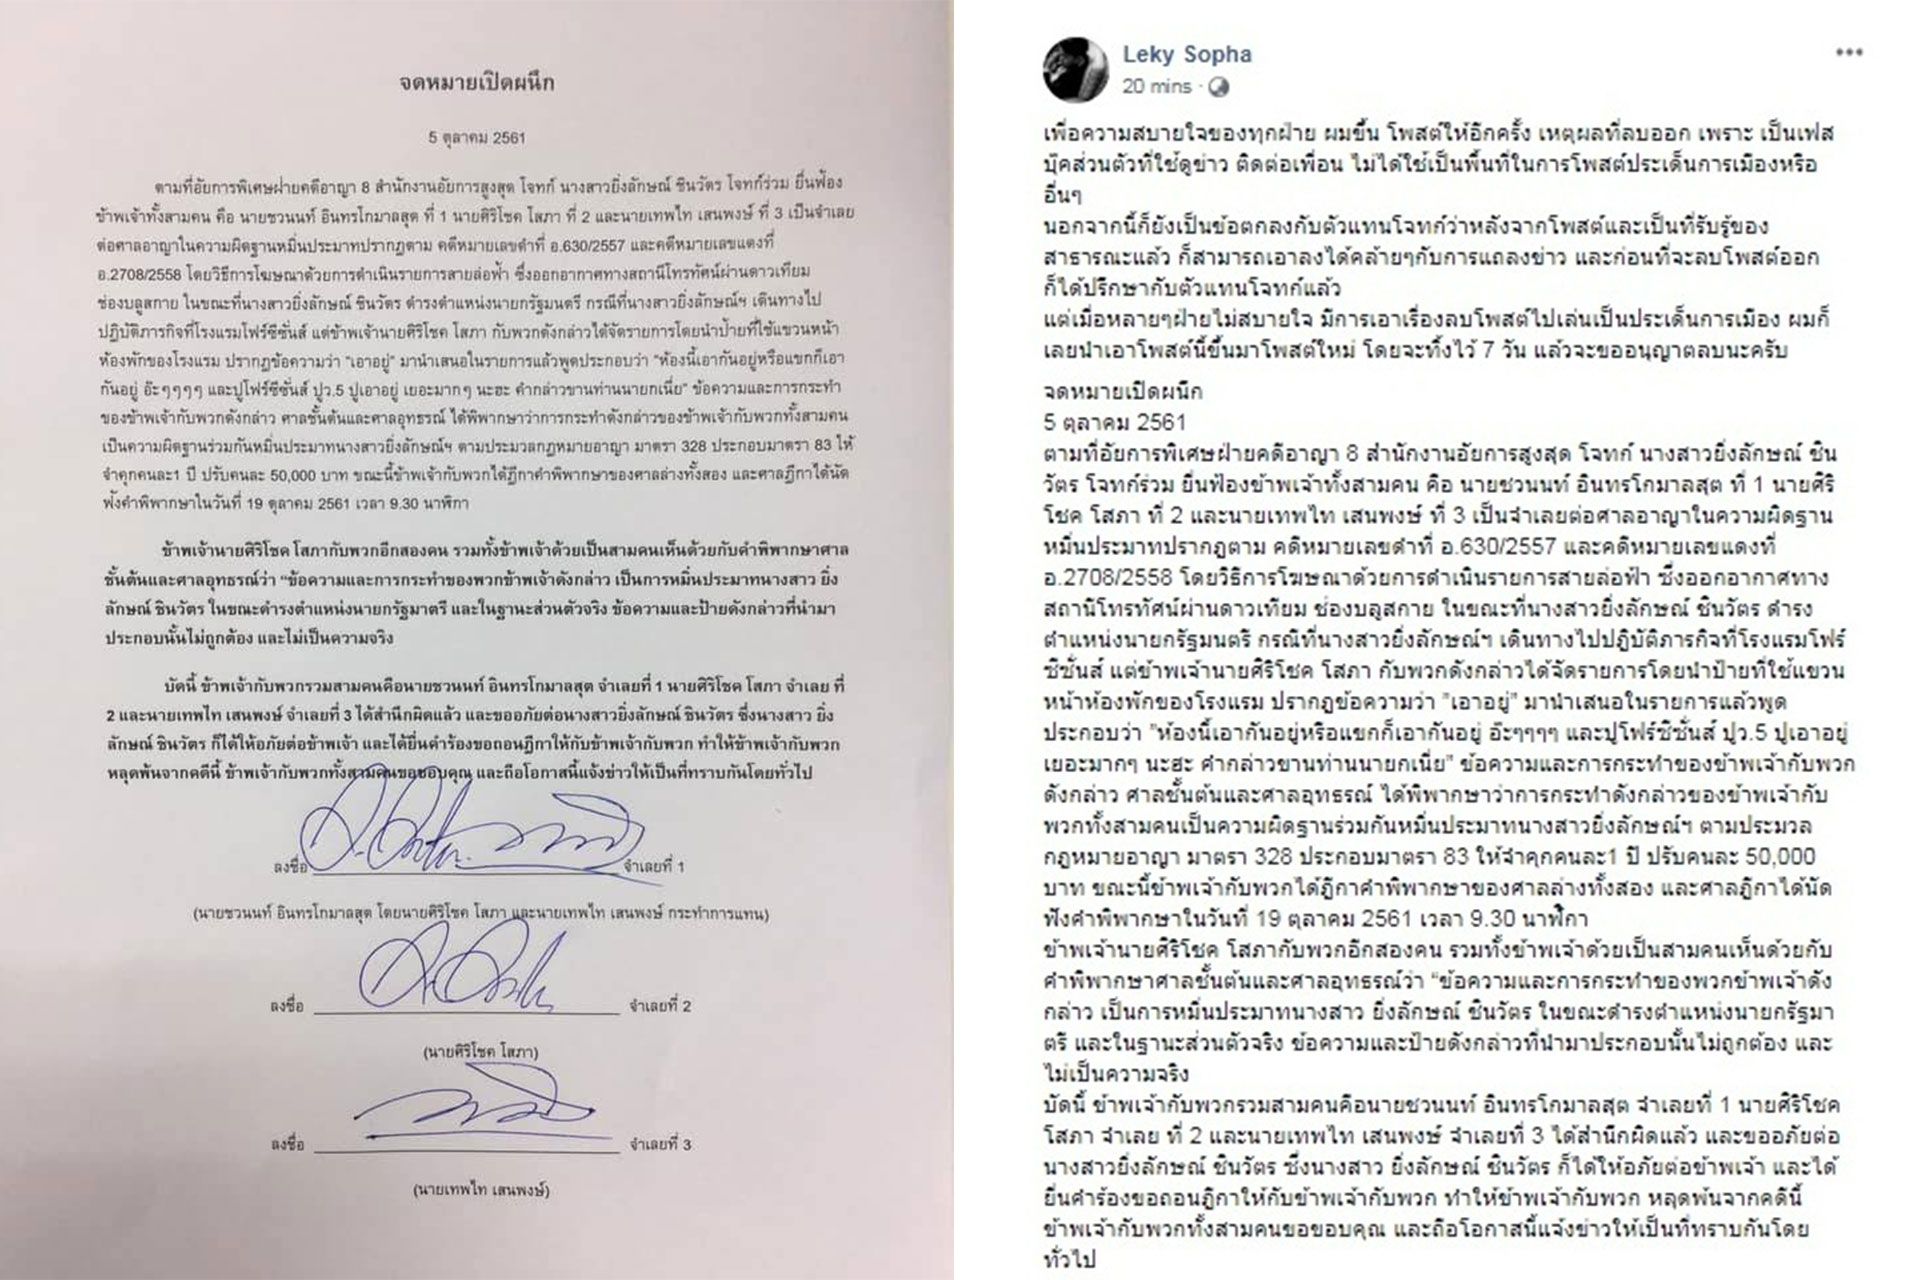 จดหมายเปิดผนึก
5 ตุลาคม 2561
ตามที่อัยการพิเศษฝ่ายคดีอาญา 8 สำนักงานอัยการสูงสุด โจทก์ นางสาวยิ่งลักษณ์ ชินวัตร โจทก์ร่วม ยื่นฟ้อง
ข้าพเจ้าทั้งสามคน คือ นายชวนนท์ อินทรโกมาลสุต ที่ 1 นายศิริโชค โสภา ที่ 2 และนายเทพไท เสนพงษ์ ที่ 3 เป็นจำเลย
ต่อศาลอาญาในความผิดฐานหมิ่นประมาทปรากฏตาม คดีหมายเลขดำที่ อ.630/2557 และคดีหมายเลขแดงที่
อ.2708/2558 โดยวิธีการโฆษณาด้วยการดำเนินรายการสายล่อฟ้า ซึ่งออกอากาศทางสถานีโทรทัศน์ผ่านดาวเทียม
ช่องบลูสกาย ในขณะที่นางสาวยิ่งลักษณ์ ชินวัตร ดำรงตำแหน่งนายกรัฐมนตรี กรณีที่นางสาวยิ่งลักษณ์ฯ เดินทางไป
ปฏิบัติภารกิจที่โรงแรมโฟร์ซีซั่นส์ แต่ข้าพเจ้านายศิริโชค โสภา กับพวกดังกล่าวได้จัดรายการโดยนำป้ายที่ใช้แขวนหน้า
ห้องพักของโรงแรม ปรากฏข้อความว่า "เอาอยู่" มานำเสนอในรายการแล้วพูดประกอบว่า "ห้องนี้เอากันอยู่หรือแขกก็เอา
กันอยู่ อ๊ะๆๆๆๆ และปูโฟร์ซีซั่นส์ ปูว.5 ปูเอาอยู่ เยอะมากๆ นะฮะ คำกล่าวขานท่านนายกเนี่ย" ข้อความและการกระทำ
ของข้าพเจ้ากับพวกดังกล่าว ศาลชั้นต้นและศาลอุทธรณ์ ได้พิพากษาว่าการกระทำดังกล่าวของข้าพเจ้ากับพวกทั้งสามคน
เป็นความผิดฐานร่วมกันหมิ่นประมาทนางสาวยิ่งลักษณ์ฯ ตามประมวลกฎหมายอาญา มาตรา 328 ประกอบมาตรา 83 ให้
จำคุกคนละ1 ปี ปรับคนละ 50,000 บาท ขณะนี้ข้าพเจ้ากับพวกได้ฎีกาคำพิพากษาของศาลล่างทั้งสอง และศาลฎีกาได้นัด
ฟังคำพิพากษาในวันที่ 19 ตุลาคม 2561 เวลา 9.30 นาฬิกา
ข้าพเจ้านายศิริโชค โสภากับพวกอีกสองคน รวมทั้งข้าพเจ้าด้วยเป็นสามคนเห็นด้วยกับคำพิพากษาศาล
ชั้นต้นและศาลอุทธรณ์ว่า "ข้อความและการกระทำของพวกข้าพเจ้าดังกล่าว เป็นการหมิ่นประมาทนางสาว ยิ่ง
ลักษณ์ ชินวัตร ในขณะดำรงตำแหน่งนายกรัฐมาตรี และในฐานะส่วนตัวจริง ข้อความและป้ายดังกล่าวที่นำมา
ประกอบนั้นไม่ถูกต้อง และไม่เป็นความจริง
บัดนี้ ข้าพเจ้ากับพวกรวมสามคนคือนายชวนนท์ อินทรโกมาลสุต จำเลยที่ 1 นายศิริโชค โสภา จำเลย ที่
2 และนายเทพไท เสนพงษ์ จำเลยที่ 3 ได้สำนึกผิดแล้ว และขออภัยต่อนางสาวยิ่งลักษณ์ ชินวัตร ซึ่งนางสาว ยิ่ง
ลักษณ์ ชินวัตร ก็ได้ให้อภัยต่อข้าพเจ้า และได้ยื่นคำร้องขอถอนฎีกาให้กับข้าพเจ้ากับพวก ทำให้ข้าพเจ้ากับพวก
หลุดพ้นจากคดีนี้ ข้าพเจ้ากับพวกทั้งสามคนขอขอบคุณ และถือโอกาสนี้แจ้งข่าวให้เป็นที่ทราบกันโดยทั่วไป
ลงชื่อ จำเลยที่ 1
(นายชวนนท์ อินทรโกมาลสุต โดยนายศิริโชค โสภา และนายเทพไท เสนพงษ์ กระทำการแทน)
ลงชื่อ จำเลยที่ 2
(นายศิริโชค โสภา)
ลงชื่อ จำเลยที่ 3
(นายเทพไท เสนพงษ์)
Leky Sopha
20 mins ·
เพื่อความสบายใจของทุกฝ่าย ผมขึ้น โพสต์ให้อีกครั้ง เหตุผลที่ลบออก เพราะ เป็นเฟส
บุ๊คส่วนตัวที่ใช้ดูข่าว ติดต่อเพื่อน ไม่ได้ใช้เป็นพื้นที่ในการโพสต์ประเด็นการเมืองหรือ
อื่นๆ
นอกจากนี้ก็ยังเป็นข้อตกลงกับตัวแทนโจทก์ว่าหลังจากโพสต์และเป็นที่รับรู้ของ
สาธารณะแล้ว ก็สามารถเอาลงได้คล้ายๆกับการแถลงข่าว และก่อนที่จะลบโพสต์ออก
ก็ได้ปรึกษากับตัวแทนโจทก์แล้ว
แต่เมื่อหลายๆฝ่ายไม่สบายใจ มีการเอาเรื่องลบโพสต์ไปเล่นเป็นประเด็นการเมือง ผมก็
เลยนำเอาโพสต์นี้ขึ้นมาโพสต์ใหม่ โดยจะทิ้งไว้ 7 วัน แล้วจะขออนุญาตลบนะครับ
จดหมายเปิดผนึก
5 ตุลาคม 2561
ตามที่อัยการพิเศษฝ่ายคดีอาญา 8 สำนักงานอัยการสูงสุด โจทก์ นางสาวยิ่งลักษณ์ ชิน
วัตร โจทก์ร่วม ยื่นฟ้องข้าพเจ้าทั้งสามคน คือ นายชวนนท์ อินทรโกมาลสุต ที่ 1 นายศิริ
โชค โสภา ที่ 2 และนายเทพไท เสนพงษ์ ที่ 3 เป็นจำเลยต่อศาลอาญาในความผิดฐาน
หมิ่นประมาทปรากฏตาม คดีหมายเลขดำที่ อ.630/2557 และคดีหมายเลขแดงที่
อ.2708/2558 โดยวิธีการโฆษณาด้วยการดำเนินรายการสายล่อฟ้า ซึ่งออกอากาศทาง
สถานีโทรทัศน์ผ่านดาวเทียม ช่องบลูสกาย ในขณะที่นางสาวยิ่งลักษณ์ ชินวัตร ดำรง
ตำแหน่งนายกรัฐมนตรี กรณีที่นางสาวยิ่งลักษณ์ฯ เดินทางไปปฏิบัติภารกิจที่โรงแรมโฟร์
ซีซั่นส์ แต่ข้าพเจ้านายศิริโชค โสภา กับพวกดังกล่าวได้จัดรายการโดยนำป้ายที่ใช้แขวน
หน้าห้องพักของโรงแรม ปรากฏข้อความว่า "เอาอยู่" มานำเสนอในรายการแล้วพูด
ประกอบว่า "ห้องนี้เอากันอยู่หรือแขกก็เอากันอยู่ อ๊ะๆๆๆๆ และปูโฟร์ซีซั่นส์ ปูว.5 ปูเอาอยู่
เยอะมากๆ นะฮะ คำกล่าวขานท่านนายกเนี่ย" ข้อความและการกระทำของข้าพเจ้ากับพวก
ดังกล่าว ศาลชั้นต้นและศาลอุทธรณ์ ได้พิพากษาว่าการกระทำดังกล่าวของข้าพเจ้ากับ
พวกทั้งสามคนเป็นความผิดฐานร่วมกันหมิ่นประมาทนางสาวยิ่งลักษณ์ฯ ตามประมวล
กฎหมายอาญา มาตรา 328 ประกอบมาตรา 83 ให้จำคุกคนละ1 ปี ปรับคนละ 50,000
บาท ขณะนี้ข้าพเจ้ากับพวกได้ฎีกาคำพิพากษาของศาลล่างทั้งสอง และศาลฎีกาได้นัด
ฟังคำพิพากษาในวันที่ 19 ตุลาคม 2561 เวลา 9.30 นาฬิกา
ข้าพเจ้านายศิริโชค โสภากับพวกอีกสองคน รวมทั้งข้าพเจ้าด้วยเป็นสามคนเห็นด้วยกับ
คำพิพากษาศาลชั้นต้นและศาลอุทธรณ์ว่า "ข้อความและการกระทำของพวกข้าพเจ้าดัง
กล่าว เป็นการหมิ่นประมาทนางสาว ยิ่งลักษณ์ ชินวัตร ในขณะดำรงตำแหน่งนายกรัฐมา
ตรี และในฐานะส่วนตัวจริง ข้อความและป้ายดังกล่าวที่นำมาประกอบนั้นไม่ถูกต้อง และ
ไม่เป็นความจริง
บัดนี้ ข้าพเจ้ากับพวกรวมสามคนคือนายชวนนท์ อินทรโกมาลสุต จำเลยที่ 1 นายศิริโชค
โสภา จำเลย ที่ 2 และนายเทพไท เสนพงษ์ จำเลยที่ 3 ได้สำนึกผิดแล้ว และขออภัยต่อ
นางสาวยิ่งลักษณ์ ชินวัตร ซึ่งนางสาว ยิ่งลักษณ์ ชินวัตร ก็ได้ให้อภัยต่อข้าพเจ้า และได้
ยื่นคำร้องขอถอนฎีกาให้กับข้าพเจ้ากับพวก ทำให้ข้าพเจ้ากับพวก หลุดพ้นจากคดีนี้
ข้าพเจ้ากับพวกทั้งสามคนขอขอบคุณ และถือโอกาสนี้แจ้งข่าวให้เป็นที่ทราบกันโดย
ทั่วไป